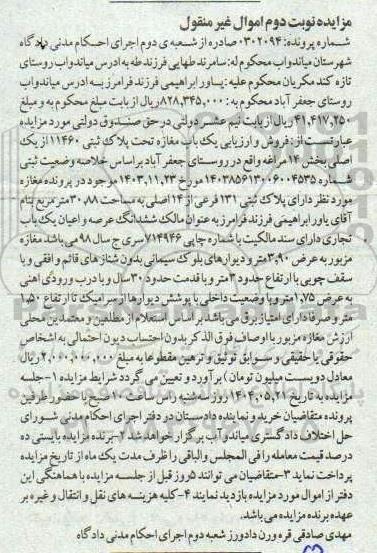 مزایده نوبت دوم اموال غیر منقول
شماره پرونده: ۰۳۰۲۰۹۴ صادره از شعبه ی دوم اجرای احکام مدنی دادگاه
شهرستان میاندواب محکوم له: سامرند طهایی فرزند طه به ادرس میاندواب روستای
تازه کند مکریان محکوم علیه: یاور ابراهیمی فرزند فرامرز به ادرس میاندواب
روستای جعفر آباد محکوم به : ۸۲۸,۳۴۵,۰۰۰ ریال از بابت مبلغ محکوم به و مبلغ
۴۱,۴۱۷,۲۵۰ ریال از بابت نیم عشر دولتی در حق صندوق دولتی مورد مزایده
عبارتست از : فروش و ارزیابی یک باب مغازه تحت پلاک ثبتی ۱۱۴۶۰ از یک
اصلی بخش ۱۴ مراغه واقع در روستای جعفر آباد بر اساس خلاصه وضعیت ثبتی
شماره ۱۴۰۳۸۵۶۱۳۰۰۶۰۰۴۵۳۵ مورخ ۱۴۰۳,۱۱,۲۳ موجود در پرونده مغازه
مورد نظر دارای پلاک ثبتی ۱۳۱ فرعی از ۱۴ اصلی به مساحت ۳۰,۸۸ متر مربع بنام
آقای یاور ابراهیمی فرزند فرامرز به عنوان مالک ششدانگ عرصه و اعیان یک باب
تجاری دارای سند مالکیت با شماره چاپی ۷۱۴۹۴۶ سری ج سال ۹۸ می باشد مغازه
مزبور به عرض ۳,۹۰ متر و دیوارهای بلوک سیمانی بدون شناژهای قائم و افقی و با
سقف چوبی با ارتفاع حدود ۳ متر و با قدمت حدود ۳۰ سال و با درب ورودی آهنی
به عرض ۱,۷۵ متر و با وضعیت داخلی با پوشش دیوارها از سرامیک تا ارتفاع ۱,۵۰
متر و صرفا دارای امتیاز برق می باشد بر اساس استعلام از مطلعین و معتمدین محلی
ارزش مغازه مزبور با اوصاف فوق الذکر بدون احتساب دیون احتمالی به اشخاص
حقوقی یا حقیقی و سوابق توثیق و ترهین مقطوعا به مبلغ ۲,۰۰۰,۰۰۰,۰۰۰ ریال
معادل دویست میلیون تومان ) برآورد و تعیین می گردد شرایط مزایده ۱- جلسه
مزایده به تاریخ ۱۴۰۴,۰۵,۲۱ روز سه شنبه راس ساعت ۱۰ صبح با حضور طرفین
پرونده متقاضیان خرید و نماینده دادستان در دفتر اجرای احکام مدنی شورای
حل اختلاف دادگستری میاندوآب برگزار خواهد شد ۲- برنده مزایده بایستی ده
درصد قیمت معامله را فی المجلس و الباقی را ظرف مدت یک ماه از تاریخ مزایده
پرداخت نماید ۳- متقاضیان می توانند ۵ روز قبل از جلسه مزایده با هماهنگی این
دفتر از اموال مورد مزایده بازدید نمایند ۴- کلیه هزینه های نقل و انتقال و غیره بر
عهده برنده مزایده می باشد.
مهدی صادقی قره ورن دادورز شعبه دوم اجرای احکام مدنی دادگاه